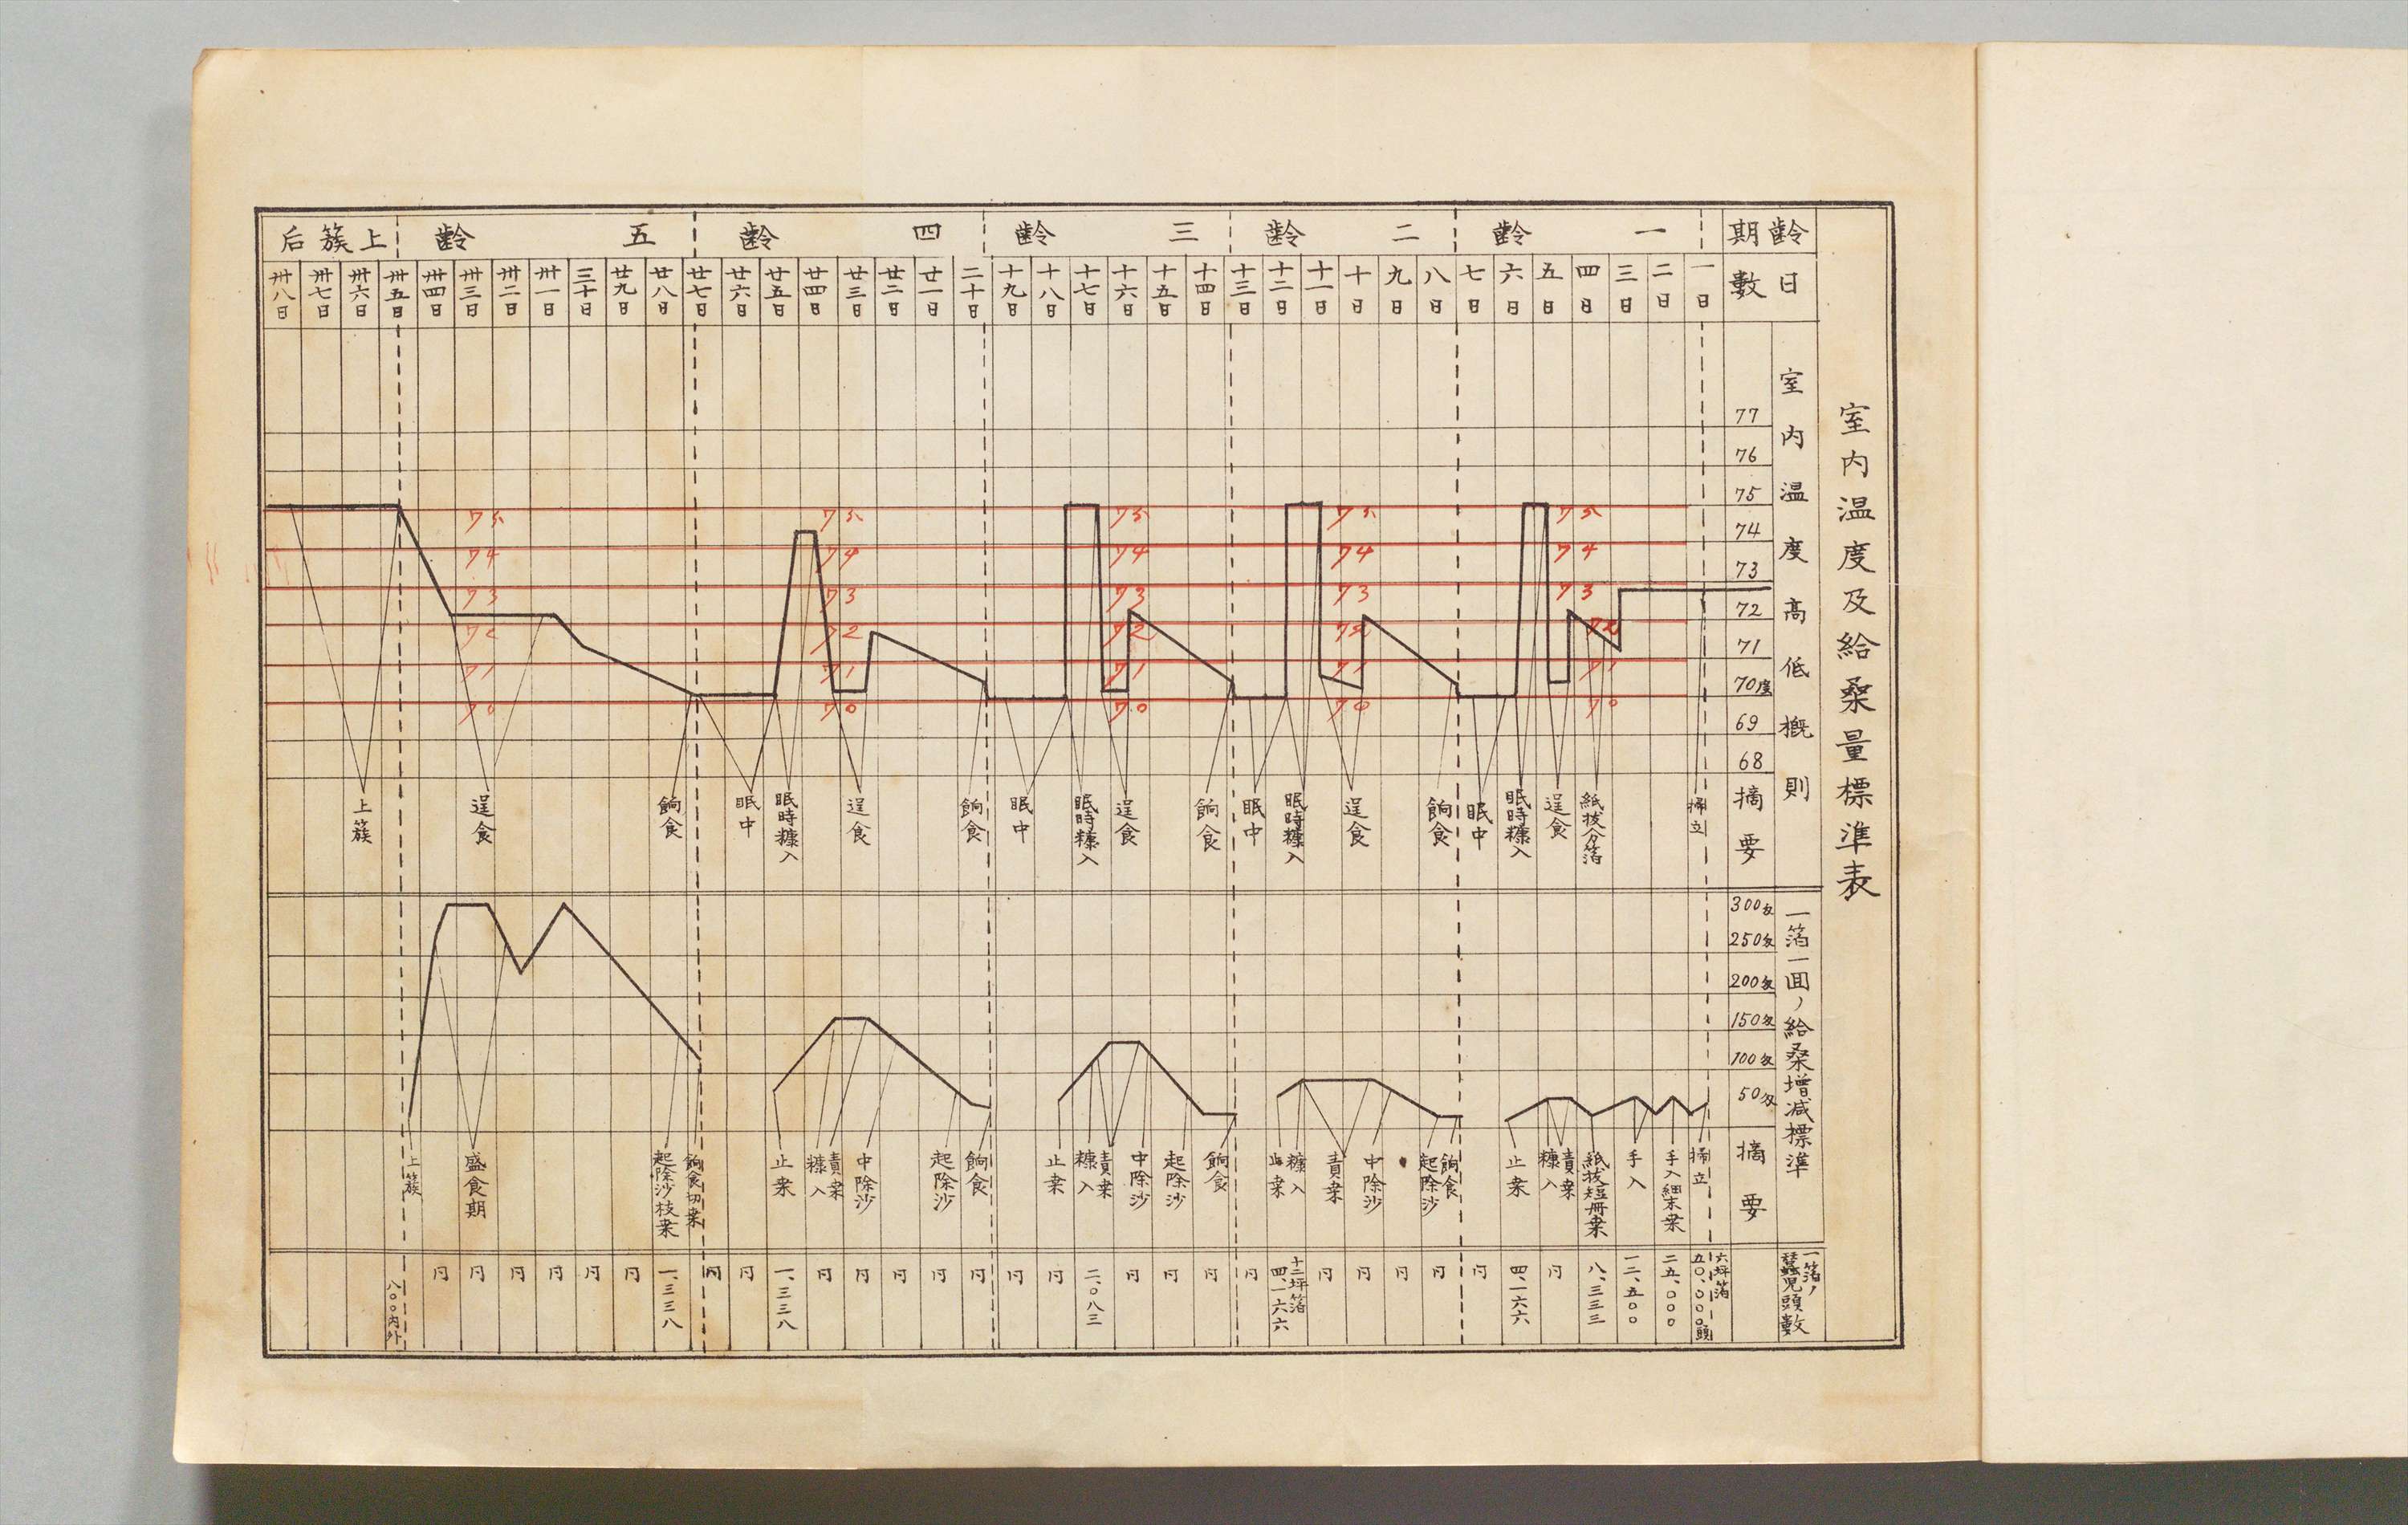 室内温度及給桑量標準表
齢期
一齢
二齢
三齢
四齢
五齢
上簇后
日數
一日
二日
三日
四日
五日
六日
七日
八日
九日
十日
十一日
十二日
十三日
十四日
十五日
十六日
十七日
十八日
十九日
二十日
廿一日
廿二日
廿三日
廿四日
廿五日
廿六日
廿七日
廿八日
廿九日
三十日
卅一日
卅二日
卅三日
卅四日
卅五日
卅六日
卅七日
卅八日
室内温度高低概則
77
76
75
74
73
72
71
70度
69
68
75
74
73
72
71
70
75
74
73
72
71
70
75
74
73
72
71
70
75
74
73
72
71
70
75
74
73
72
71
70
摘要
掃立
紙抜分箔
逞食
眠時糠入
眠中
餉食
逞食
眠時糠入
眠中
餉食
逞食
眠時糠入
眠中
餉食
逞食
眠時糠入
眠中
餉食
逞食
上簇
一箔一回ノ給桑増減標準
300匁
250匁
200匁
150匁
100匁
50匁
摘要
掃立
手入細末桒
手入
紙抜短冊桒
責桒
糠入
止桒
餉食
起除沙
中除沙
責桒
糠入
止桒
餉食
起除沙
中除沙
責桒
糠入
止桒
餉食
起除沙
中除沙
責桒
糠入
止桒
餉食切桒
起除沙枝桒
盛食期
上簇
一箔ノ蠶児頭數
六坪箔
五〇、〇〇〇頭
二五、〇〇〇
一二、五〇〇
八、三三三
同
四、一六六
同
同
同
同
同
十二坪箔
四、一六六
同
同
同
同
二、〇八三
同
同
同
同
同
同
同
一、三三八
同
同
一、三三八
同
同
同
同
同
同
八〇〇内外